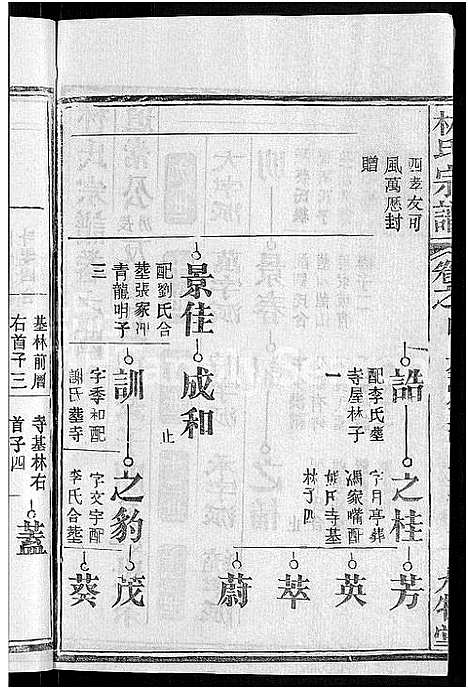 林氏宗譜
卷之
四孝友可
風萬懸封
贈
誥
配李氏塟
寺屋林子
一
之桂
字月亭葬
馮家嘴配
氏寺基
林子四
芳
英
萃
蔚
景佳
配劉氏合
塟張家冲
青龍明子
三
成和
止
訓
字季和配
謝氏塟寺
之豹
字文宇配
李氏合塟
茂
葵
基林前層
右首子三
寺基林右
首子四
蓋